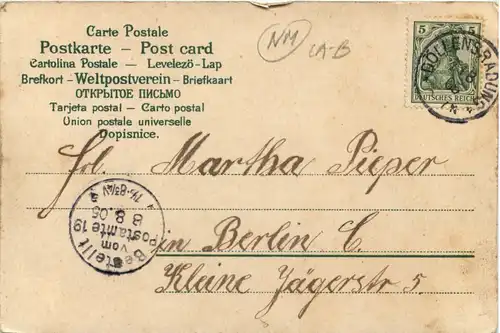 Carte Postale
Postkarte – Post card
Cartolina Postale – Levelezö-Lap
Brefkort - Weltpostverein - Briefkaart
ОТКРЫТОЕ ПИСЬМО
Tarjeta postal – Carto postal
Union postale universelle
Dopisnice.
NM
LA-B
5 5
DEUTSCHES REICH
Frl. Martha Pieper
in Berlin C.
Kleine Jägerstr 5.
Bestellt
vom
Postamte 19
8 8.05